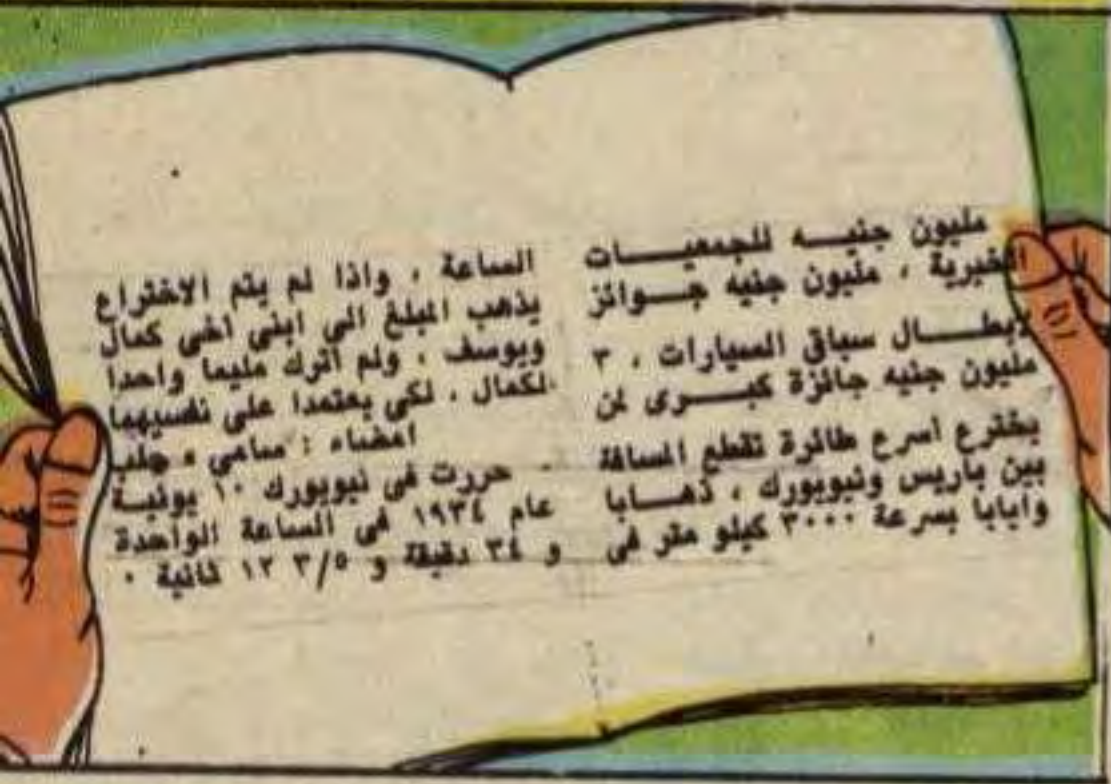 مليون جنيـــه للجمعيـــات
الخيرية ، مليون جنيه جـــوائز
لابطـــال سباق السيارات ، ٣
مليون جنيه جائزة كبـــرى لمن
يخترع اسرع طائرة تقطع المسافة
بين باريس ونيويورك ، ذهـــابا
وايابا بسرعة ٣٠٠٠ كيلو متر فى
الساعة ، واذا لم يتم الاختراع
يذهب المبلغ الى ابنى اخى كمال
ويوسف ، ولم اترك مليما واحدا
لكمال . لكى يعتمدا على نفسيهما
امضاء : سامى
حررت فى نيويورك ١٠ يونيـة
عام ١٩٣٤ فى الساعة الواحدة
و ٣٤ دقيقة و ٣/٥ ١٢ ثانية ٠